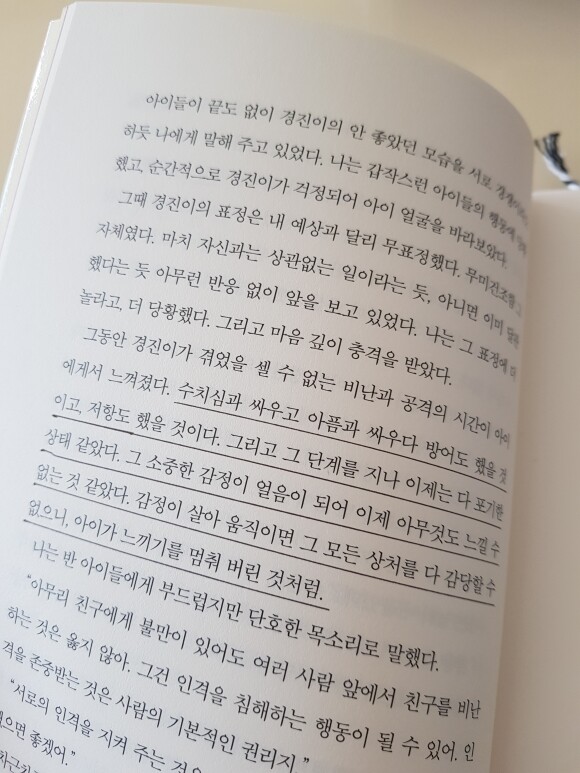 아이들이 끝도 없이 경진이의 안 좋았던 모습을 서로
하듯 나에게 말해 주고 있었다. 나는 갑작스런 아이들의 행동에
했고, 순간적으로 경진이가 걱정되어 아이 얼굴을 바라보았다.
그때 경진이의 표정은 내 예상과 달리 무표정했다. 무미건조함 그
자체였다. 마치 자신과는 상관없는 일이라는 듯, 아니면 이미
했다는 듯 아무런 반응 없이 앞을 보고 있었다. 나는 그 표정에 더
놀라고, 더 당황했다. 그리고 마음 깊이 충격을 받았다.
그동안 경진이가 겪었을 셀 수 없는 비난과 공격의 시간이 아이
에게서 느껴졌다. 수치심과 싸우고 아픔과 싸우다 방어도 했을 것
이고, 저항도 했을 것이다. 그리고 그 단계를 지나 이제는 다 포기한
상태 같았다. 그 소중한 감정이 얼음이 되어 이제 아무것도 느낄 수
없는 것 같았다. 감정이 살아 움직이면 그 모든 상처를 다 감당할 수
없으니, 아이가 느끼기를 멈춰 버린 것처럼.
나는 반 아이들에게 부드럽지만 단호한 목소리로 말했다.
“아무리 친구에게 불만이 있어도 여러 사람 앞에서 친구를 비난
하는 것은 옳지 않아. 그건 인격을 침해하는 행동이 될 수 있어. 인
격을 존중받는 것은 사람의 기본적인 권리지.”
“서로의 인격을 지켜 주는 것
좋겠어.”